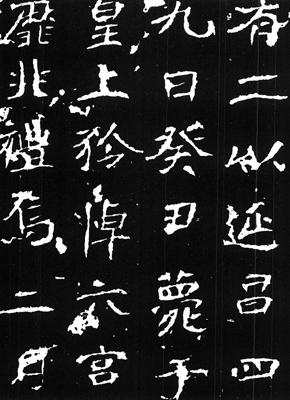 有二以延昌四
九日癸丑薨于
皇上矜悼六宮
靡非禮焉二月